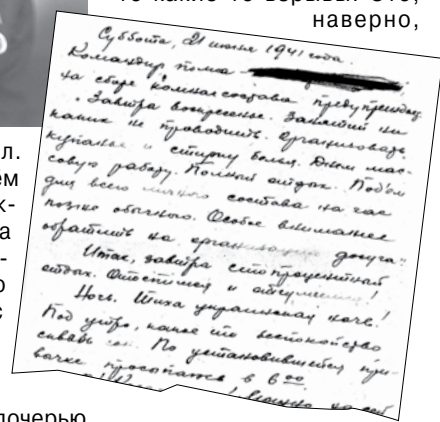 то какие-то взрывы. Это,
наверно,
Суббота, 21 июня 1941 года.
Командир полка –
на сборе комнач состава предупреждает
. Завтра воскресенье. Занятий ни
каких не проводить. Организовать
купанье и стирку белья. Днем мас-
совую работу. Полный отдых. Подъем
для всего личного состава на час
позже обычного. Особое внимание
обратить на организацию досуга."
Итак, завтра стопроцентный
отдых. Отоспимся и !
Ночь. Тиха украинская ночь.
Под утро, какое то беспокойство
сквозь сон. По установившейся при-
вычке просыпаюсь в 6 00
л.
ем
к-
а
-
о
с
дочерью